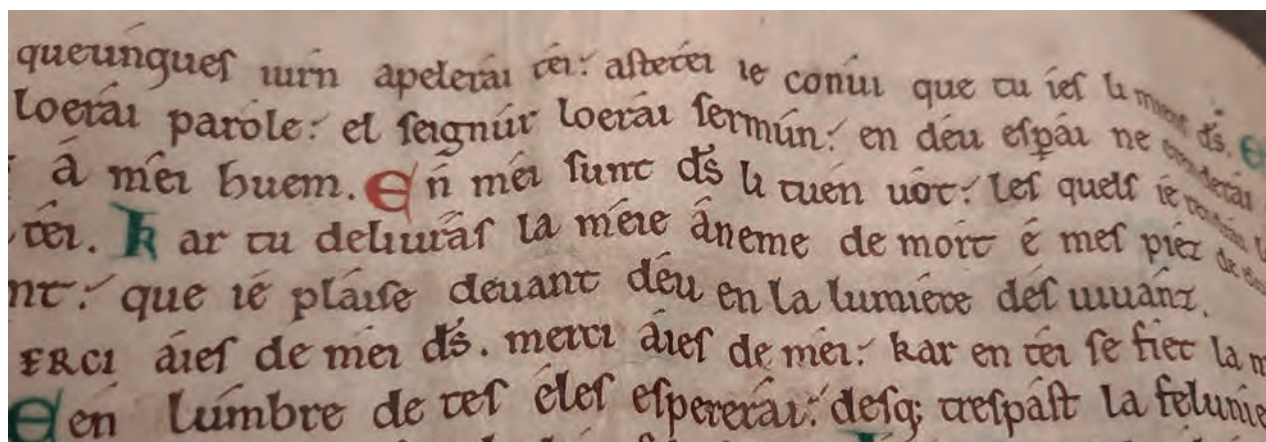 queunques iurn apelerai tei: asteteı ie conui que tu ies li miens ds. E
loerai parole: el seignúr loerái sermún: en déu espái ne
á méi huem. En méi sunt ds li tuén uót: les quels ie
téi. Kar tu deliurás la méie áneme de mort é mes piez de
nt: que ié pláise deuant déu en la lumiére dés uiuánz.
ERCI áies de méi ds. merci áies de méi: kar en téi se fiet la m
E en lúmbre de tes éles espererái: desq; trespást la felunie